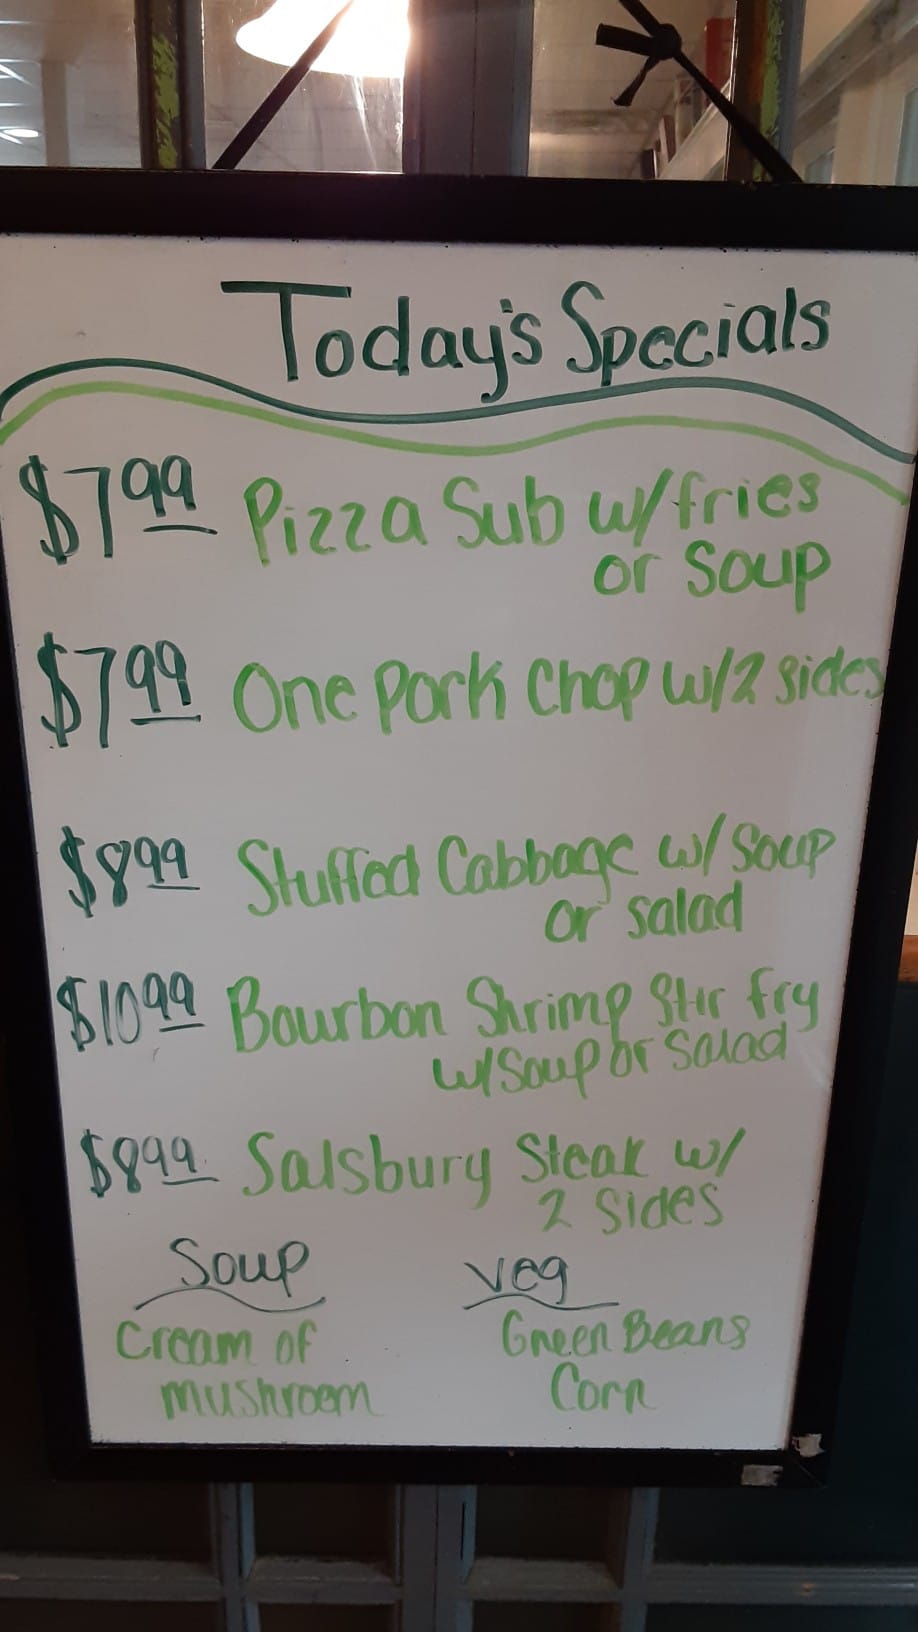 Today's Specials
$7.99 Pizza Sub w/fries
or soup
$7.99 One Pork Chop w/2 sides
$8.99 Stuffed Cabbage w/ Soup
or salad
$10.99 Bourbon Shrimp Stir fry
w/Soup or Salad
$8.99 Salsbury Steak w/
2 sides
Soup
Veg
Cream of
mushroom
Green Beans
Corn